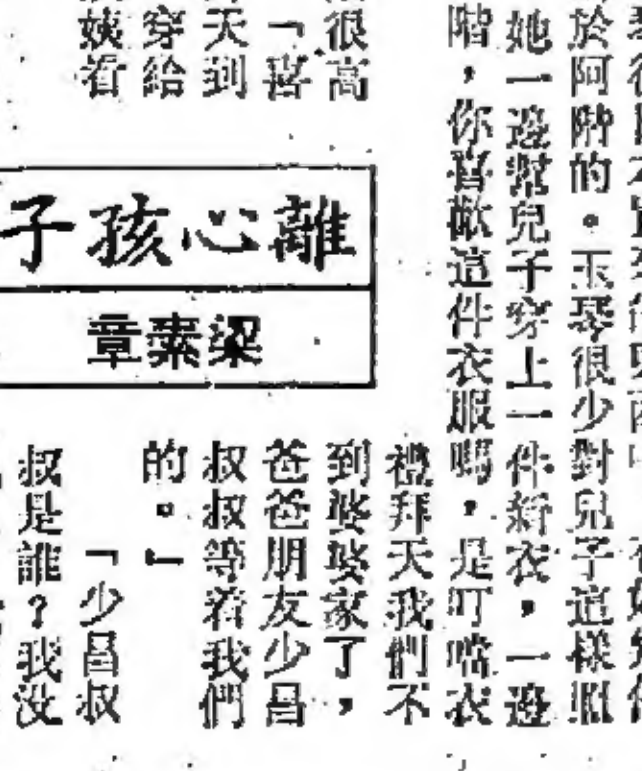 於阿階的。玉琴很少對兒子這樣照
她一邊幫兒子穿上一件新衣,一邊
階,你喜歡這件衣服嗎,是叮噹衣
很高
「喜
天到
穿給
姨看
離心孩子
梁素章
禮拜天我們不
到婆婆家了,
爸爸朋友少昌
叔叔等着我們
的。」
「少昌叔
叔是誰?我沒